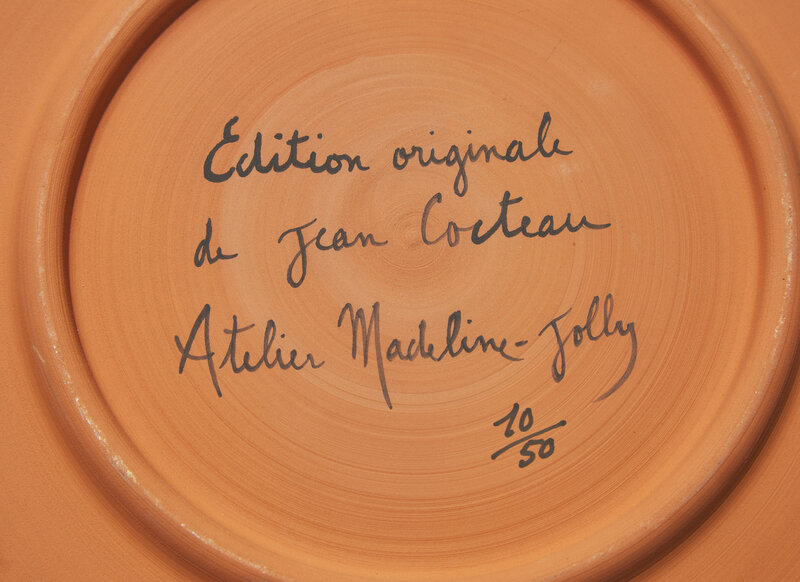 Édition originale
de Jean Cocteau
Atelier Madeline-Jolly
10/50